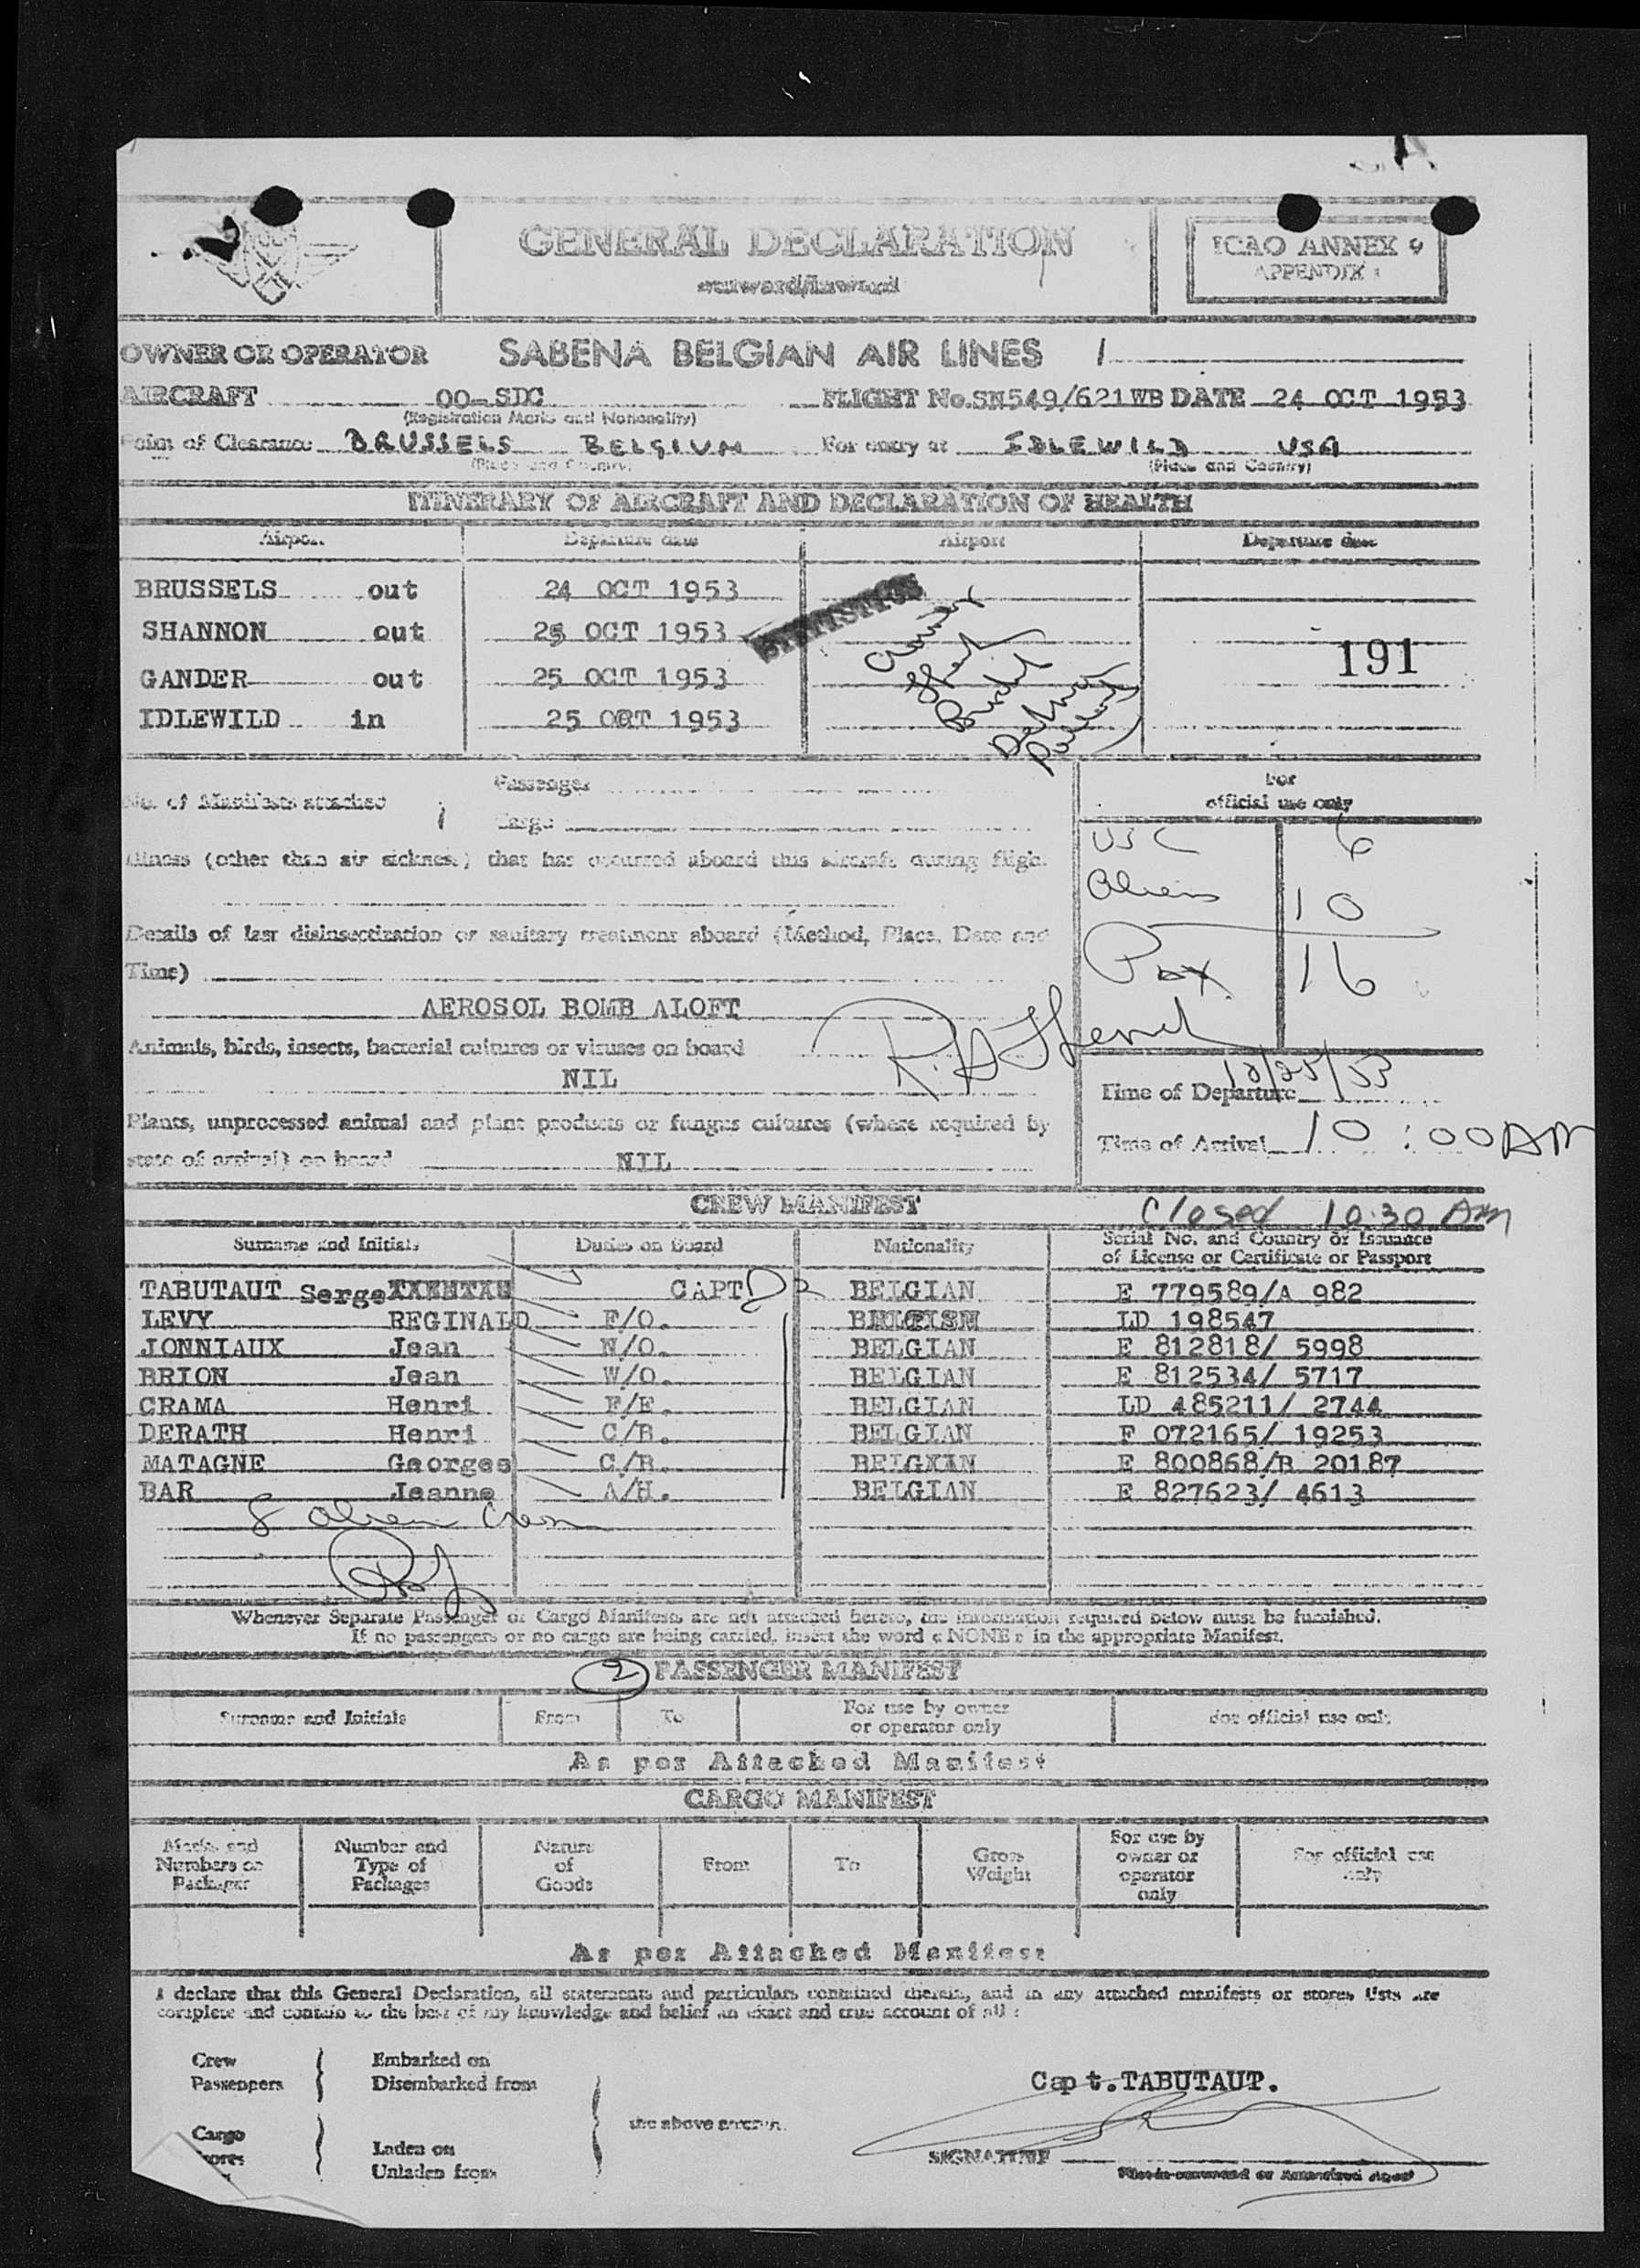 GENERAL DECLARATION
outward/inward
ICAO ANNEX 9
APPENDIX 1
OWNER OR OPERATOR SABENA BELGIAN AIR LINES
AIRCRAFT OO-SDC FLIGHT No. SN549/621WB DATE 24 OCT 1953
(Registration Marks and Nationality)
Point of Clearance BRUSSELS BELGIUM For entry at IDLEWILD USA
(Place and Country) (Place and Country)
ITINERARY OF AIRCRAFT AND DECLARATION OF HEALTH
Airport Departure date Airport Departure date
BRUSSELS out 24 OCT 1953
STATISTICS
SHANNON out 25 OCT 1953
191
GANDER out 25 OCT 1953
IDLEWILD in 25 OCT 1953
Passenger
No. of Manifests attached
Cargo
For
official use only
USC 6
Aliens 10
Pax 16
Illness (other than air sickness) that has occurred aboard this aircraft during flight
Details of last disinsectization or sanitary treatment aboard (Method, Place, Date and
Time)
AEROSOL BOMB ALOFT
Animals, birds, insects, bacterial cultures or viruses on board
NIL
10/25/53
Time of Departure
Plants, unprocessed animal and plant products or fungus cultures (where required by
state of arrival) on board NIL
Time of Arrival 10:00 AM
CREW MANIFEST
Closed 10:30 Am
Surname and Initials Duties on Board Nationality Serial No. and Country of Issuance
of License or Certificate or Passport
TABUTAUT Serge CAPT BELGIAN E 779589/A 982
LEVY REGINALD F/O. LD 198547
JONNIAUX Jean N/O. BELGIAN E 812818/ 5998
BRION Jean W/O. BELGIAN E 812534/ 5717
CRAMA Henri F/E. BELGIAN LD 485211/ 2744
DERATH Henri C/R. BELGIAN F 072165/ 19253
MATAGNE Georges C/R. BELGIAN E 800868/B 20187
BAR Jeanne A/H. BELGIAN E 827623/ 4613
8 alien Crew
Whenever Separate Passenger or Cargo Manifests are not attached hereto, the information required below must be furnished.
If no passengers or no cargo are being carried, insert the word « NONE » in the appropriate Manifest.
2 PASSENGER MANIFEST
Surname and Initials From To For use by owner
or operator only For official use only
As per Attached Manifest
CARGO MANIFEST
Marks and
Numbers on
Packages
Number and
Type of
Packages
Nature
of
Goods
From
To
Gross
Weight
For use by
owner or
operator
only
For official use
only
As per Attached Manifest
I declare that this General Declaration, all statements and particulars contained therein, and in any attached manifests or stores lists are
complete and contain to the best of my knowledge and belief an exact and true account of all :
Crew Embarked on
Passengers Disembarked from
the above aircraft.
Cargo Laden on
Stores Unladen from
Capt.TABUTAUT.
SIGNATURE
Pilot-in-command or Authorized Agent